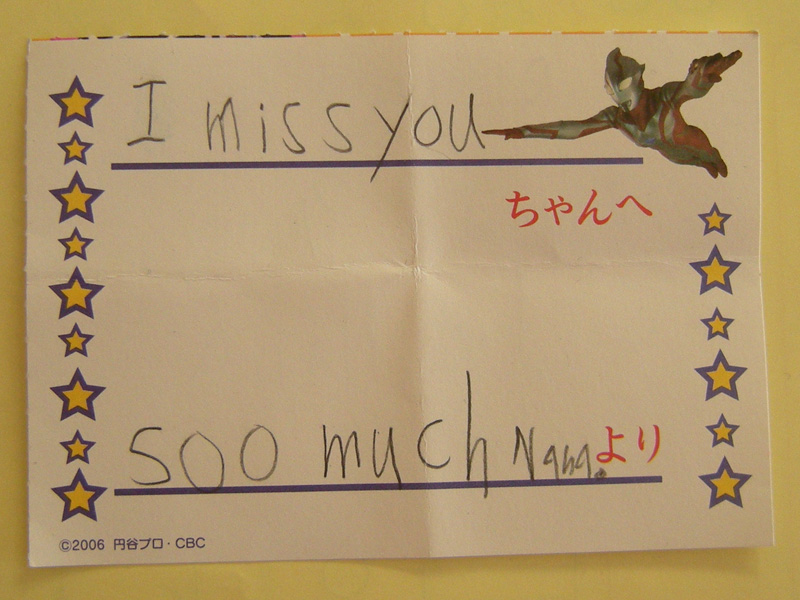 I miss you
ちゃんへ
soo much Nana.より
©2006 円谷プロ・CBC